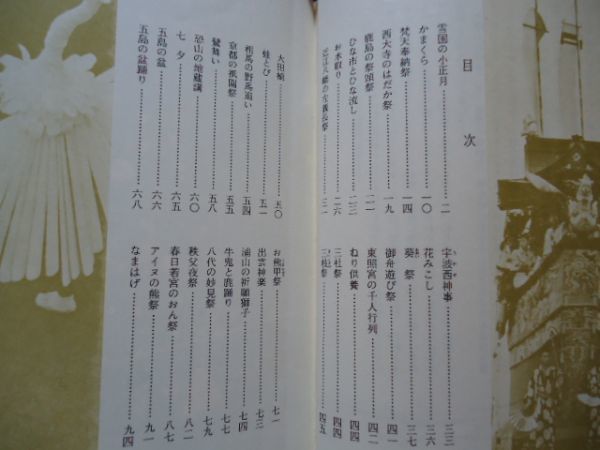 目次
雪国の小正月……二
かまくら……一〇
梵天奉納祭……一四
西大寺のはだか祭……一九
鹿島の祭頭祭……二一
ひな市とひな流し……二三
お水取り……二六
宇波西神事……三三
花みこし……三六
葵祭……三七
御舟遊び祭……四一
東照宮の千人行列……四二
ねり供養……四四
三社祭……四四
大田植……五〇
蛙とび……五一
相馬の野馬追い……五四
京都の祇園祭……五五
鷺舞い……五八
恐山の地蔵講……六〇
七夕……六五
五島の盆……六六
五島の盆踊り……六八
お熊甲祭……七一
出雲神楽……七三
浦山の祈願獅子……七四
牛鬼と鹿踊り……七七
八代の妙見祭……七九
秩父夜祭……八二
春日若宮のおん祭……八七
アイヌの熊祭……九一
なまはげ……九四